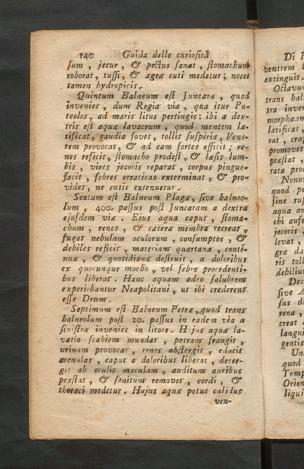 140 Guida delle curiosità
sum, jecur, & pectus sanat, stomachum
roborat, tussi, & ægræ cuti medetur; nocet
tamen hydropicis.
Quintum Balneum est Juncara, quod
invenies, dum Regia via, qua itur Pu-
teolos, ad maris litus pertingis: ibi a dex-
tris est aquæ lavacrum, quod mentem læ-
tificat, gaudia fovet, tollit suspiria, Vene-
rem provocat, & ad eam fortes efficit; re-
nes reficit, stomacho prodest, & læsis lum-
bis, vires jecoris reparat, corpus pingue-
facit, febres erraticas exterminat, & pro-
videt, ne cutis extenuetur.
Sextum est Balneum Plagæ, sive balneo-
lum, 400. passus post Juncaram a dextra
ejusdem viæ. Ejus aqua caput, stoma-
chum, renes, & cætera membra recreat,
fugat nebulam oculorum, consumptos, &
debiles reficit, materiam quartanæ, conti-
nuæ, & quotidianæ destruit, a doloribus
ex quocunque morbo, vel febre procedenti-
bus liberat. Hanc aquam adeo salubrem
experiebantur Neapolitani, ut ibi crederent
esse Deum.
Septimum est Balneum Petræ, quod trans
balneolum post 20. passus in eadem via a
sinistra invenies in litore. Hujus aquæ la-
vatio scabiem mundat, petram frangit,
urinam provocat, renes abstergit, educit
arenulas, caput a doloribus liberat, deter-
git ab oculis maculam, auditum auribus
præstat, & sonitum removet, cordi, &
thoraci medetur. Hujus aquæ potus calidus
ven-